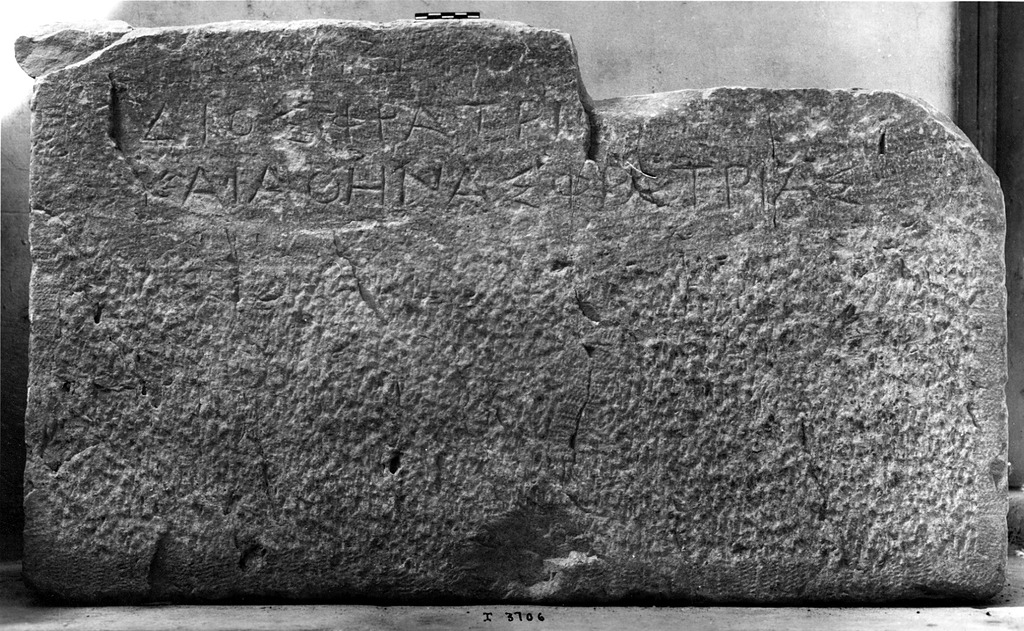 ΔΙΟΣ ΦΡΑΤΡΙ
ΚΑΙ ΑΘΗΝΑΣ ΦΡΑΤΡΙΑΣ
I 3706